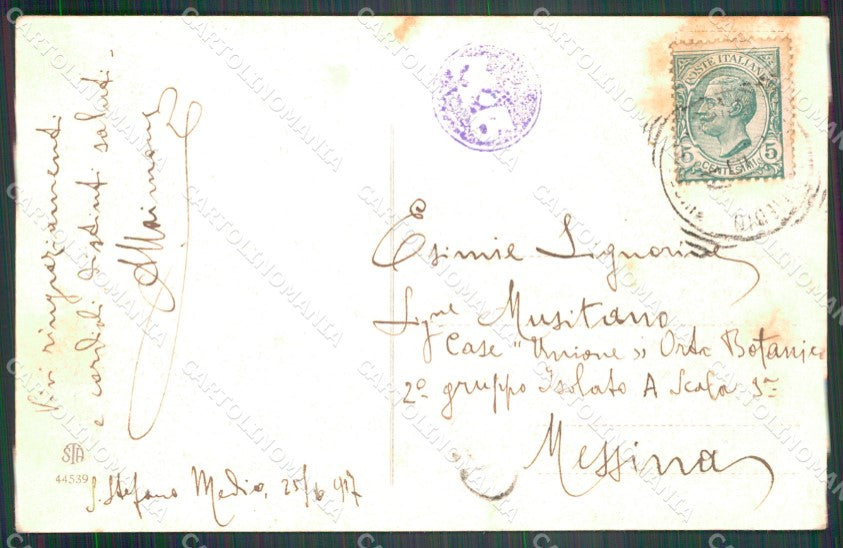 Vivi ringraziamenti
e cordiali distinti saluti -
S. Stefano Medio, 25/6 917
STA
44539
POSTE ITALIANE
5 CENTESIMI 5
Esimie Signorine
Sig.ne Musitano
Case "Unione" Orto Botanico
2º gruppo Isolato A Scala
Messina
CARTOLINOMANIA